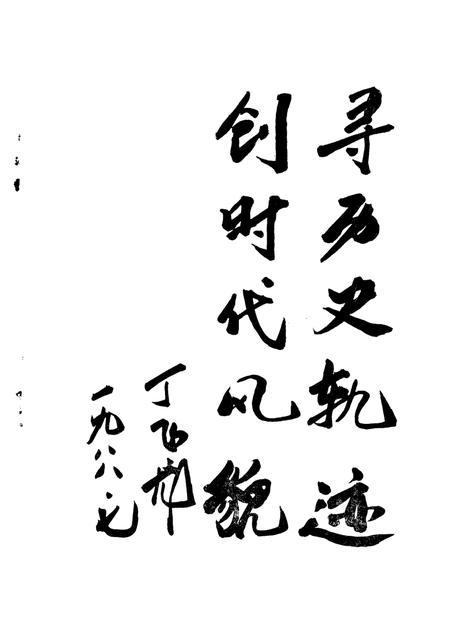 寻历史轨迹
创时代风貌
丁飞翔
一九八八·七